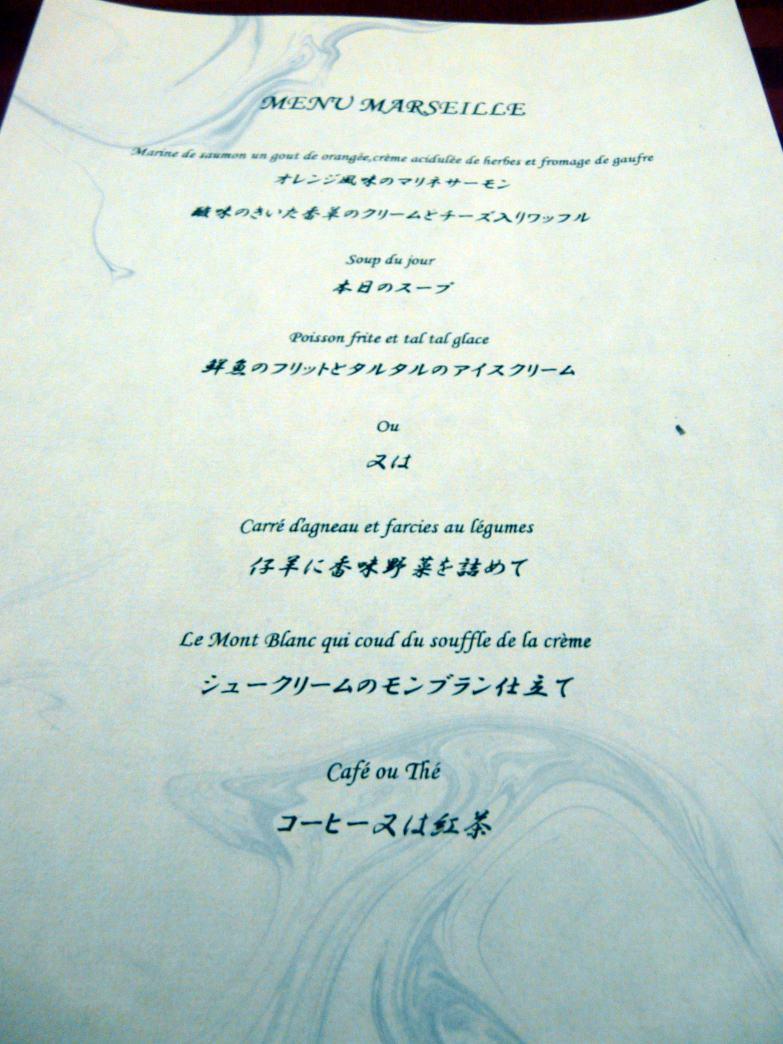 MENU MARSEILLE
Marine de saumon un gout de orangée,crème acidulée de herbes et fromage de gaufre
オレンジ風味のマリネサーモン
酸味のきいた香草のクリームとチーズ入りワッフル
Soup du jour
本日のスープ
Poisson frite et tal tal glace
鮮魚のフリットとタルタルのアイスクリーム
Ou
又は
Carré d'agneau et farcies au légumes
仔羊に香味野菜を詰めて
Le Mont Blanc qui coud du souffle de la crème
シュークリームのモンブラン仕立て
Café ou Thé
コーヒー又は紅茶